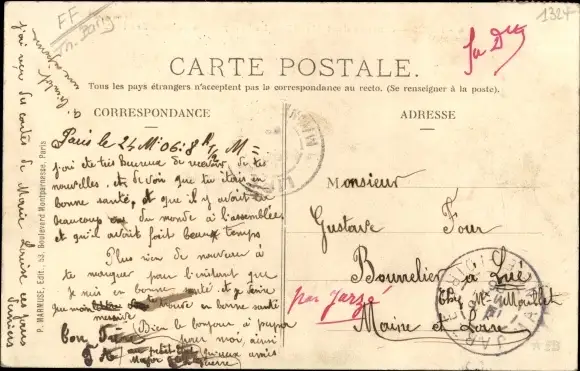 1324
FF
CARTE POSTALE.
Tous les pays étrangers n'acceptent pas la correspondance au recto. (Se renseigner à la poste).
CORRESPONDANCE
Paris le 24 Mi 06: 8 h 1/2 M =
j'ai été très heureux de recevoir de tes
nouvelles, et de voir que tu étais en
bonne santé, et que il y avait eu
beaucoup du monde à l'assemblée
et qu'il avait fait beau temps
Plus rien de nouveau à
te marquer pour l'instant que
Je suis en bonne santé et je désire
que mon te trouve en bonne santé
Ton Frère (Bien le bonjour à papa
pour moi, ainsi
au petit
Major guerre)
j'ai reçu des cartes de Marie Louise ces jours
derniers
P. MARMUSE, Edit., 53, Boulevard Montparnasse, Paris
ADRESSE
Monsieur
Gustave Four
Bourrelier à Lué
Chez Mr Maillet
par Jarzé
Maine et Loire